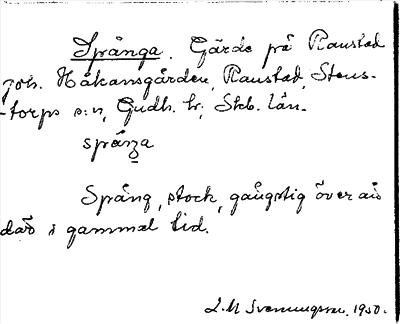 Spånga. Gärde på Raustad
Joh. Håkansgården, Raustad, Stens-
-torps s:n, Gudh. hr, Skb. län.
spånga
Spång, stock, gångstig över än
där i gammal tid.
L. M. Svenungsson. 1930.